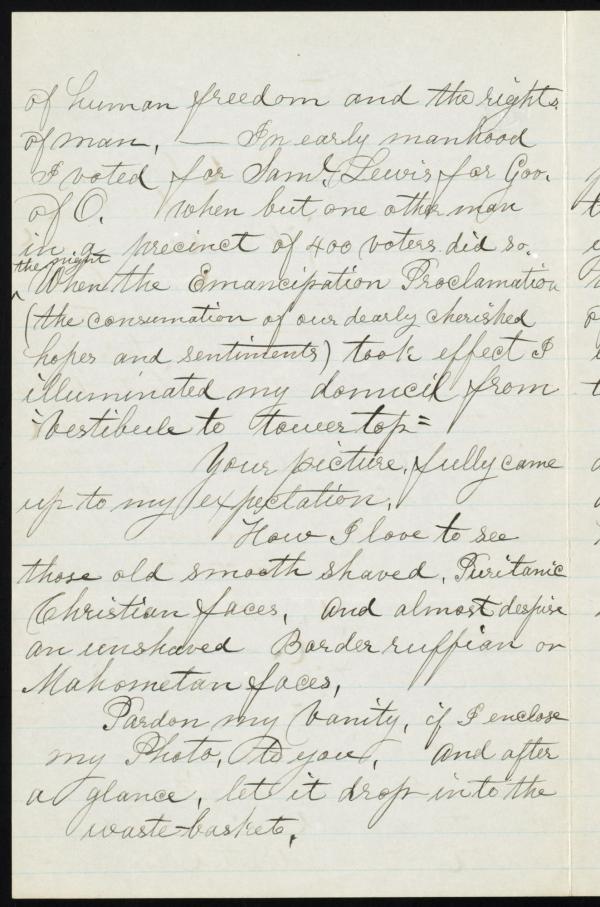 of human freedom and the rights
of man, — In early manhood
I voted for Saml. Lewis for Gov.
of O. when but one other man
in a precinct of 400 voters did so.
the night
^ When the Emancipation Proclamation
(the consumation of our dearly cherished
hopes and sentiments) took effect I
illuminated my domicil from
"Vestibule to tower top=
Your picture, fully came
up to my expectation.
How I love to see
those old smooth shaved, Puritanic
Christian faces, and almost despise
an unshaved Border ruffian or
Mahometan faces,
Pardon my Vanity, if I enclose
my Photo, to you, and after
a glance, let it drop into the
waste-basket,